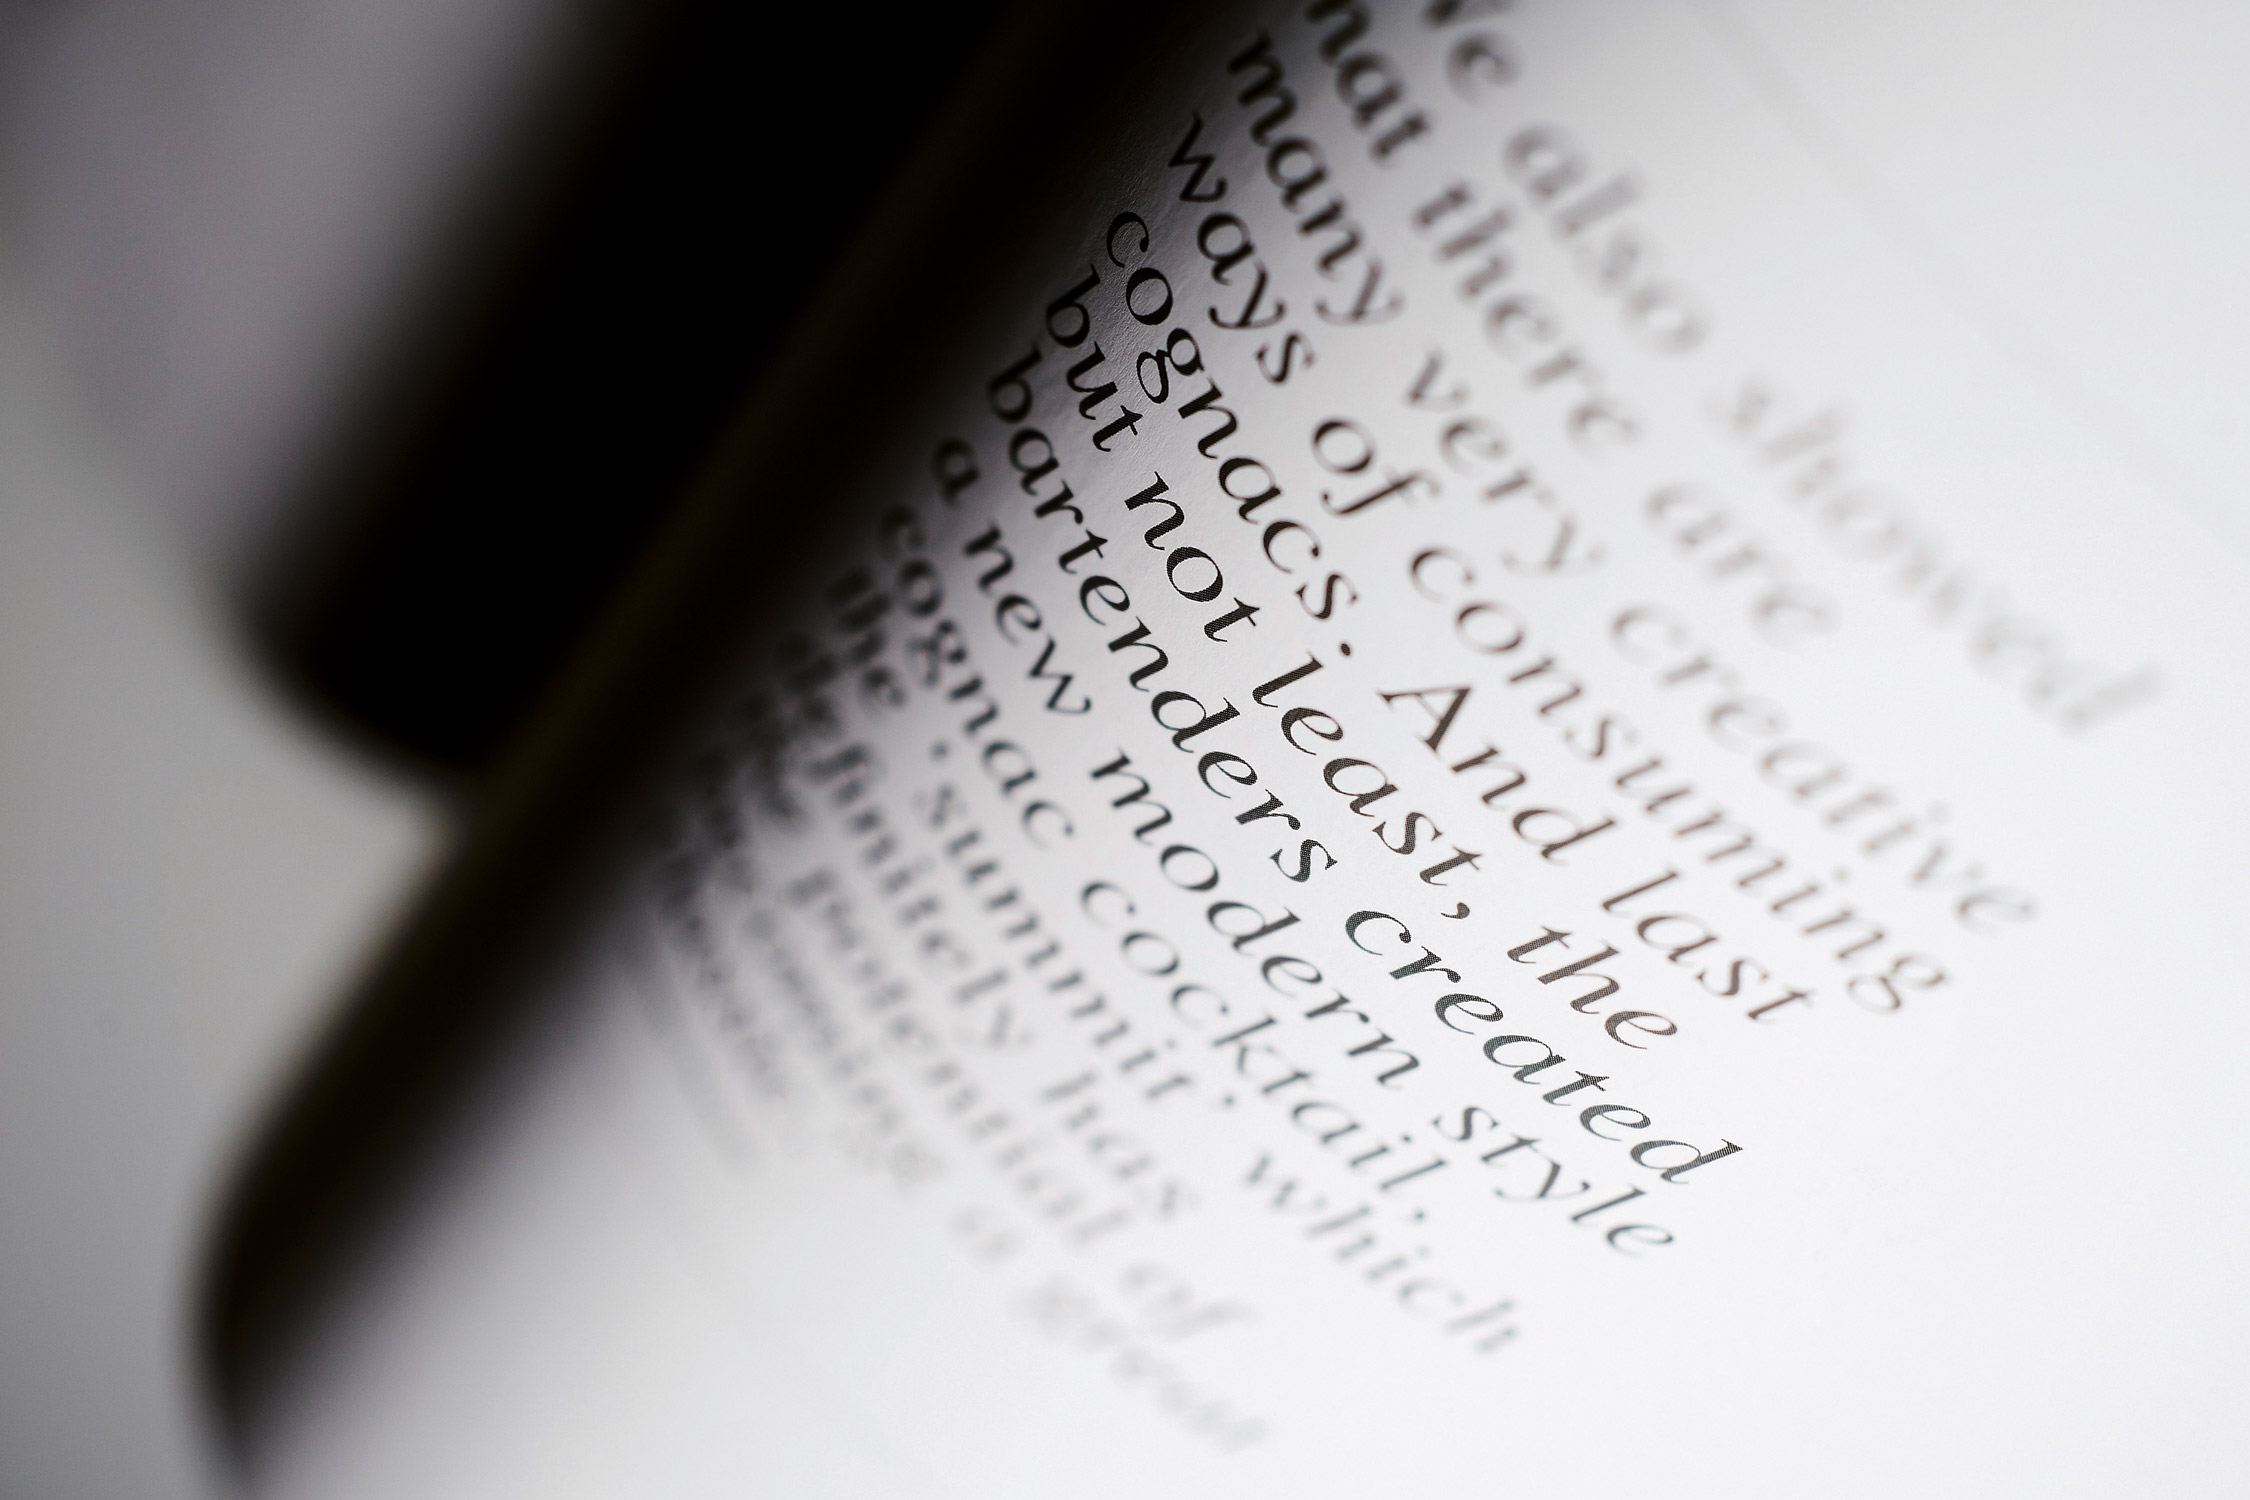 We also showed
that there are
many very creative
ways of consuming
cognacs. And last
but not least, the
bartenders created
a new modern style
cognac cocktail,
the 'summit', which
definitely has
potential of
a great